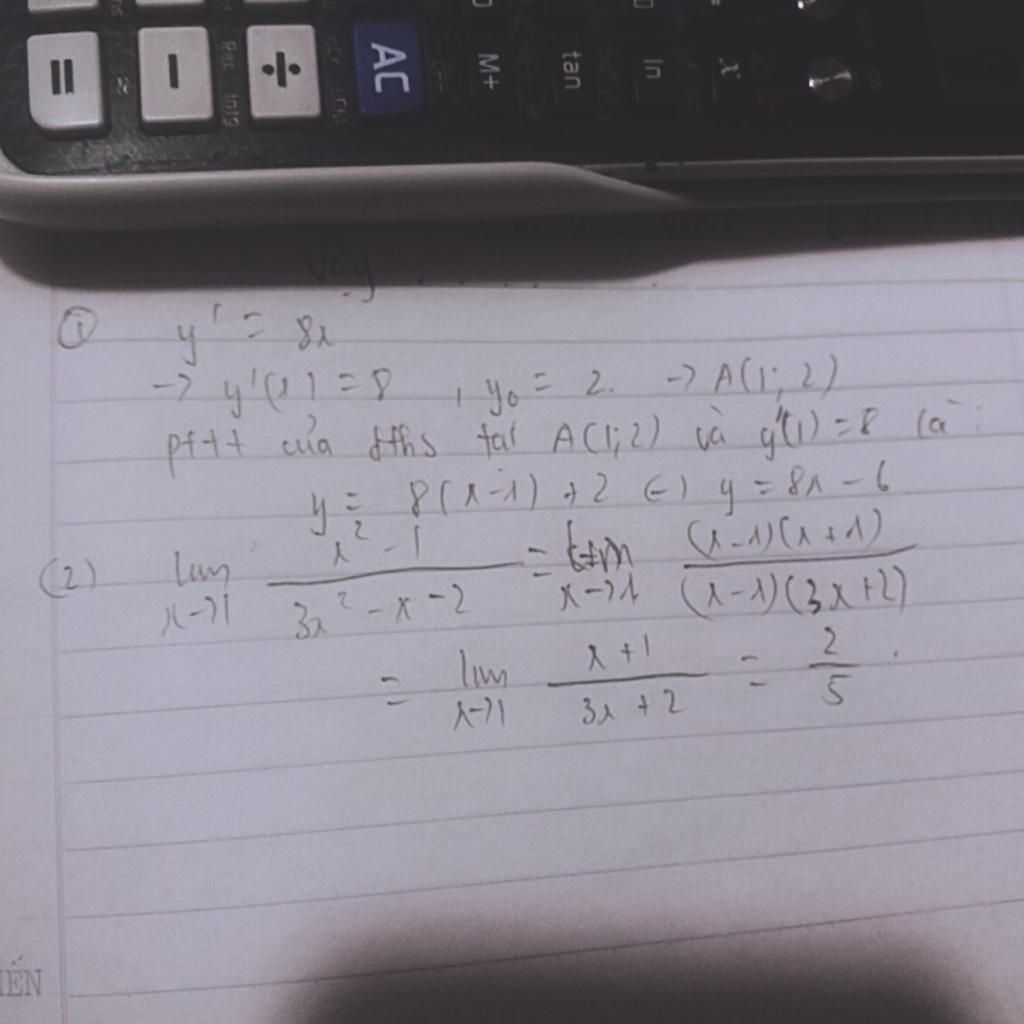 = − ÷ AC M+ tan ln x
Rec Intg
Vậy
① y' = 8x
→ y'(1) = 8 , y₀ = 2. → A(1; 2)
pttt của đths tại A(1;2) và y'(1) = 8 là:
y = 8(x-1) + 2 (=) y = 8x - 6
(2) lim x→1 (x² - 1)/(3x² - x - 2) = lim x→1 ((x-1)(x+1))/((x-1)(3x+2))
= lim x→1 (x+1)/(3x+2) = 2/5.
IẾN